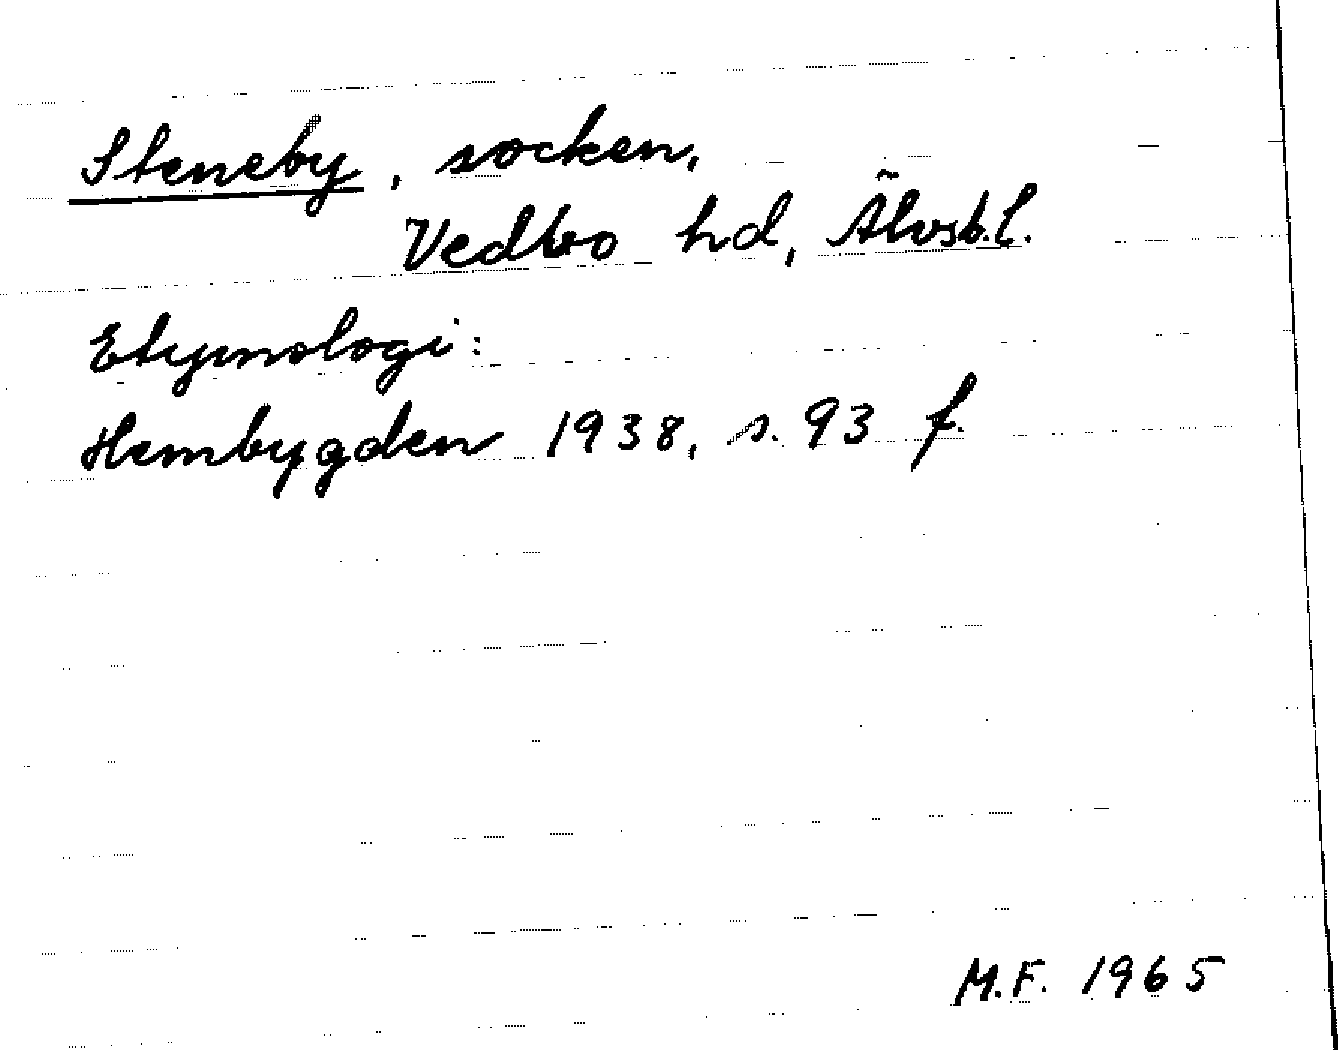 Steneby, socken,
Vedbo hd, Älvsb.l.
Etymologi:
Hembygden 1938, s. 93 f.
M.F. 1965